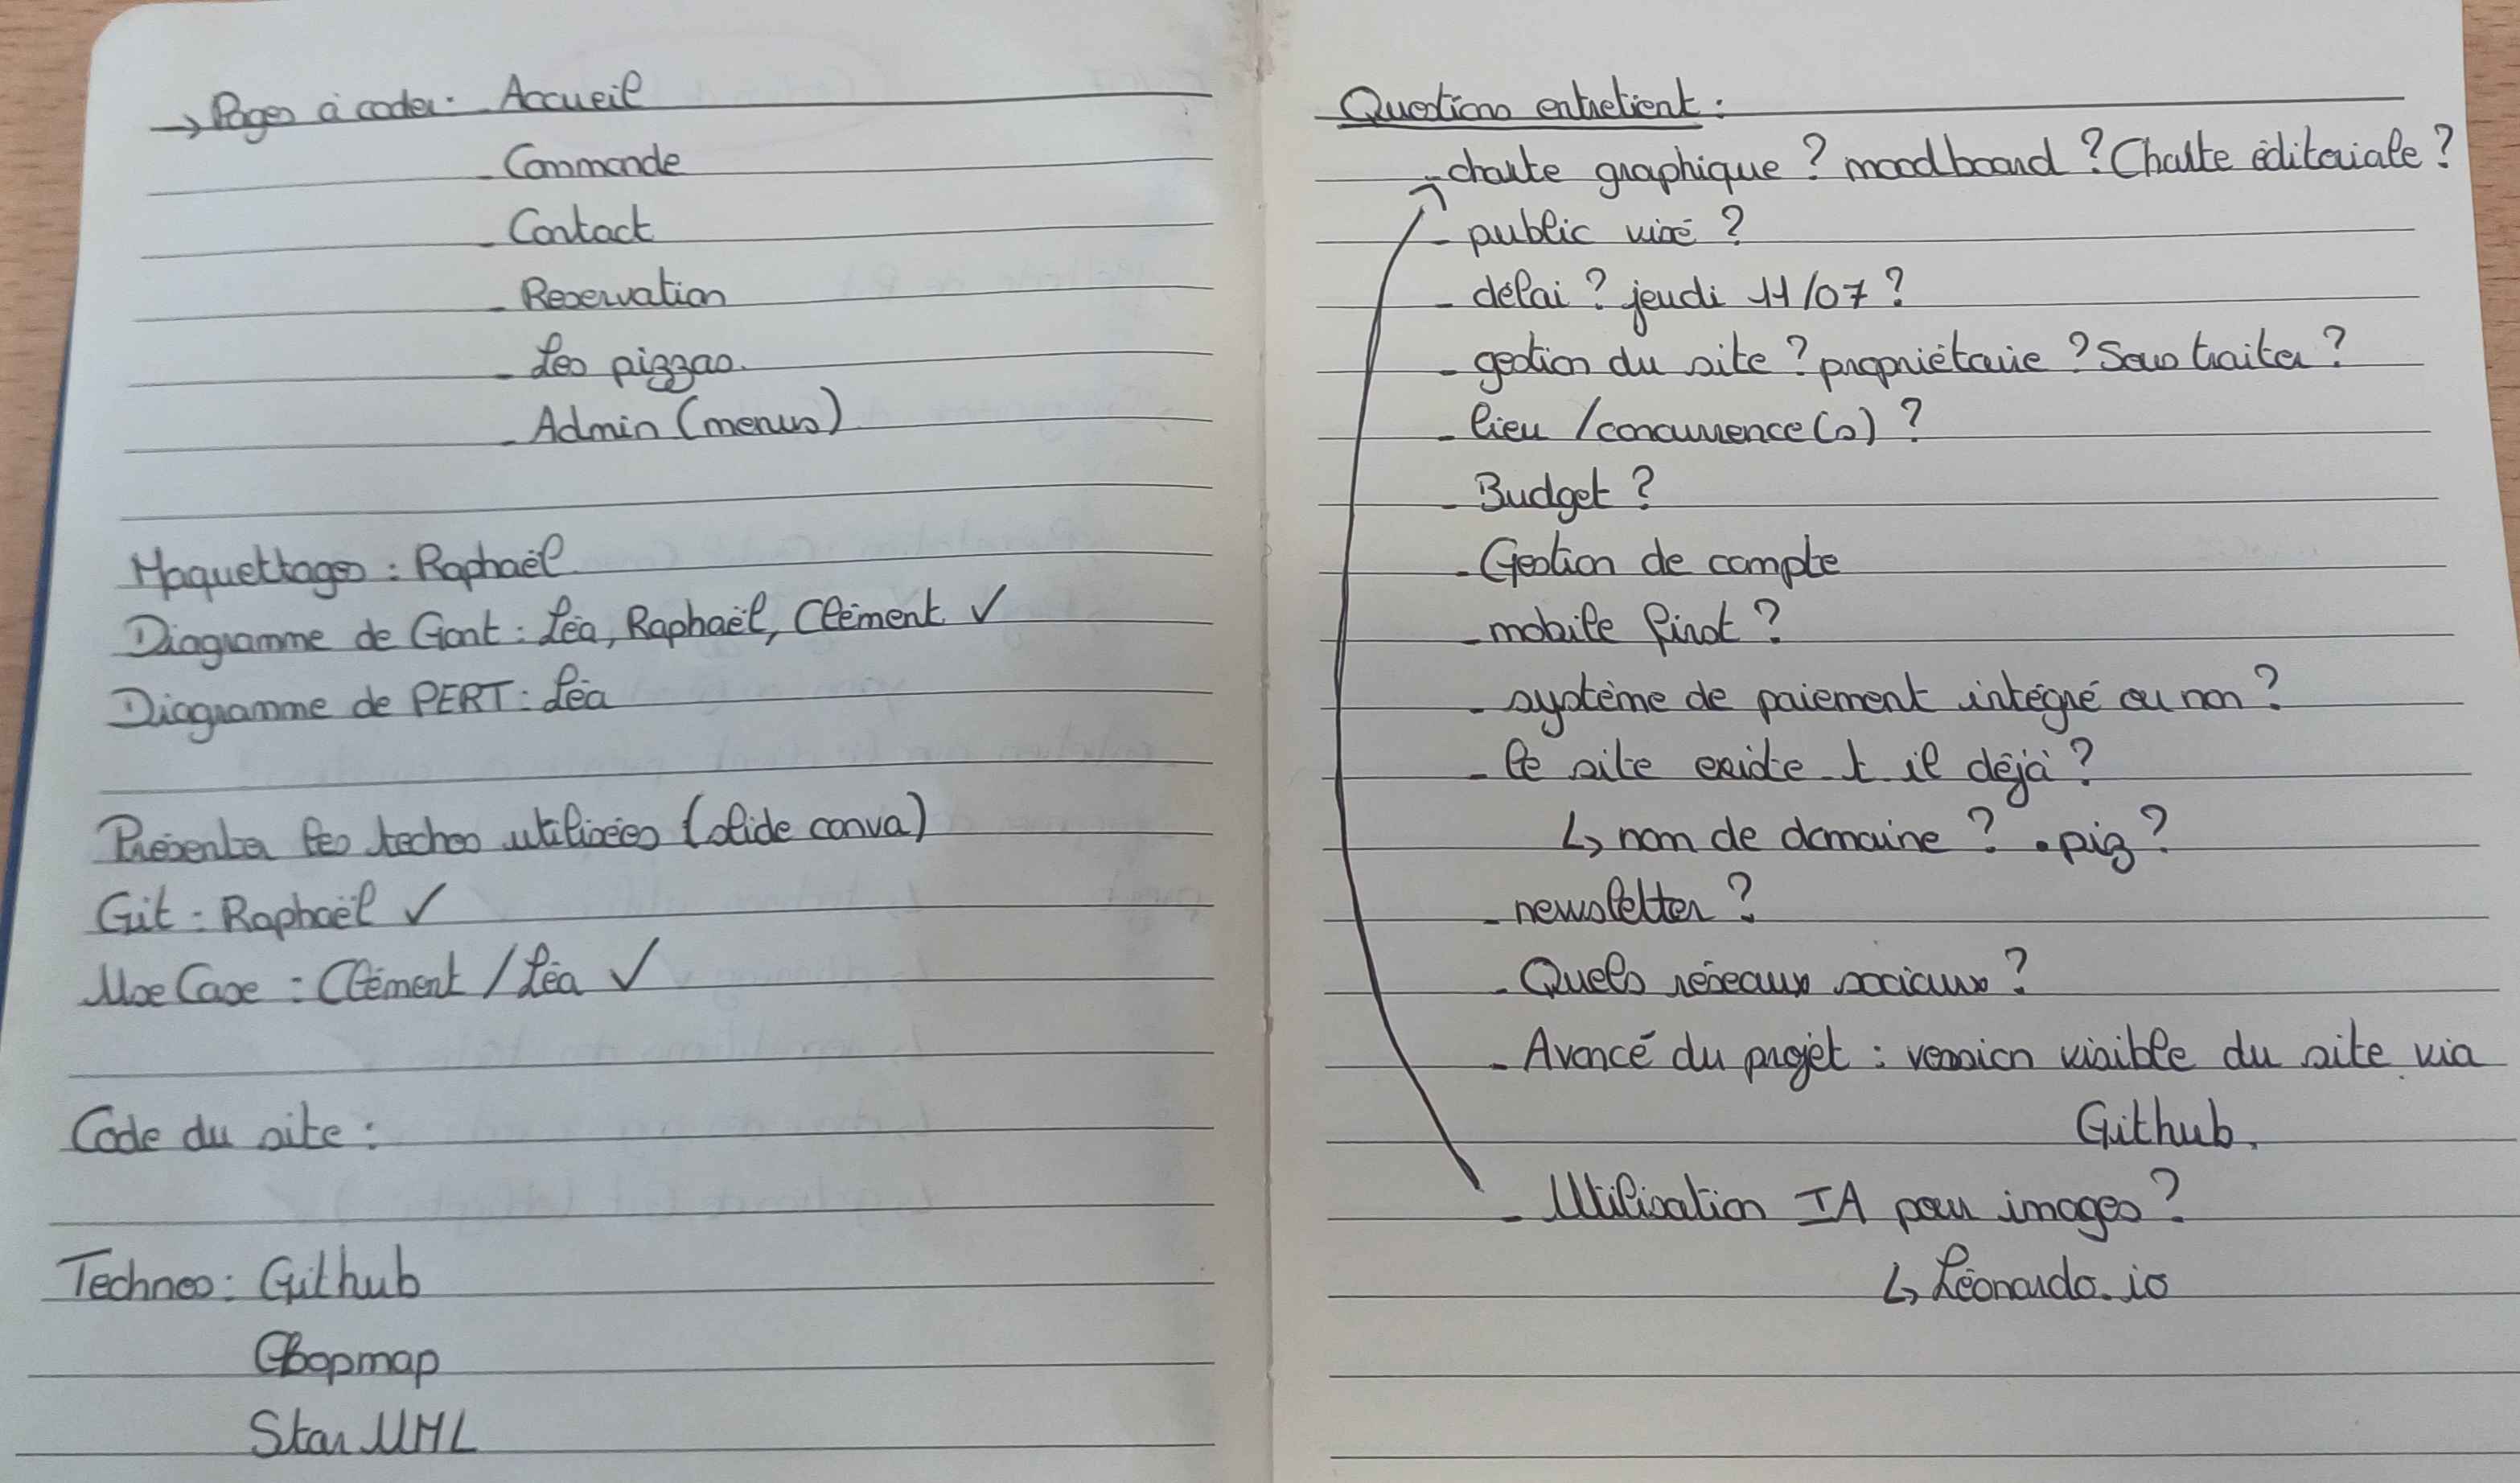 → Pages à coder : - Accueil
- Commande
- Contact
- Reservation
- Les pizzas.
- Admin (menus)
Maquettages : Raphaël
Diagramme de Gant : Léa, Raphaël, Clément ✓
Diagramme de PERT : Léa
Présenter les technos utilisées (slide canva)
Git : Raphaël ✓
Use Case : Clément / Léa ✓
Code du site :
Technos : Github
Star UML
Questions entretient :
- charte graphique ? moodboard ? Charte éditoriale ?
- public visé ?
- délai ? jeudi 11/07 ?
- gestion du site ? propriétaire ? Sous traiter ?
- lieu / concurrence(s) ?
- Budget ?
- Gestion de compte
- mobile first ?
- système de paiement intégré ou non ?
- le site existe t il déjà ?
↳ nom de domaine ? .piz ?
- newsletter ?
- Quels réseaux sociaux ?
- Avancé du projet : version visible du site via
Github.
- Utilisation IA pour images ?
↳ Léonardo.io